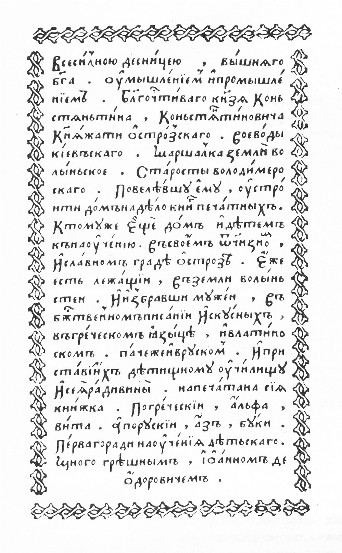 Всеси́лною десни́цею , вы́шняго
бг҃а . Оу҆мышле́нїем̾ и҆промышле
нїем̾ . Бл҃гочⷭ҇ти́ваго кн҃зѧ Конь
стѧньти́на , Коньстѧти́новича
Кнѧжати Ѻ҆стро́зскаго . Воеводы
кїе́въскаго . Маршалка землѝ во
лы́ньское . Ста́росты володимеро
скаго . Повеле́вшу є҆му̀ , оу҆стро́
ити до́мъ на де́ло кни́г печа́тныхъ .
Ктому́же є҆щѐ до́мъ и҆ де́темъ
къ нау҆че́нию . Въ свое́мъ ѿчи́зномъ ,
и҆ сла́вномъ гра́де Ѻ҆стро́зѣ . Е҆́же
е́сть лежа́щїи , въ землѝ волы́нь
стей . И҆ и҆збра́вши муже́й , въ
бж҃тве́нномъ писа́нїи и҆ску́сныхъ ,
въ гре́ческомъ ѧ҆зы́це , и҆ в лати́нь
скомъ . па́че же и҆ в ру́скомъ . и҆ при
ста́ви и҆́хъ де́тищному оу҆чи́лищу
И҆ сеѧ̀ ра́ди вины̀ . напеча́тана сїѧ̀
кни́жка . По гре́чески , а҆́льфа ,
ви́та . а҆ по ру́ский , а҆́зъ , бу́ки .
Пе́рваго ра́ди нау҆че́нїѧ де́тьскаго .
гре́шнымъ , Ї҆ѡа́нномъ Ѳе
ѡ́доровичемъ .